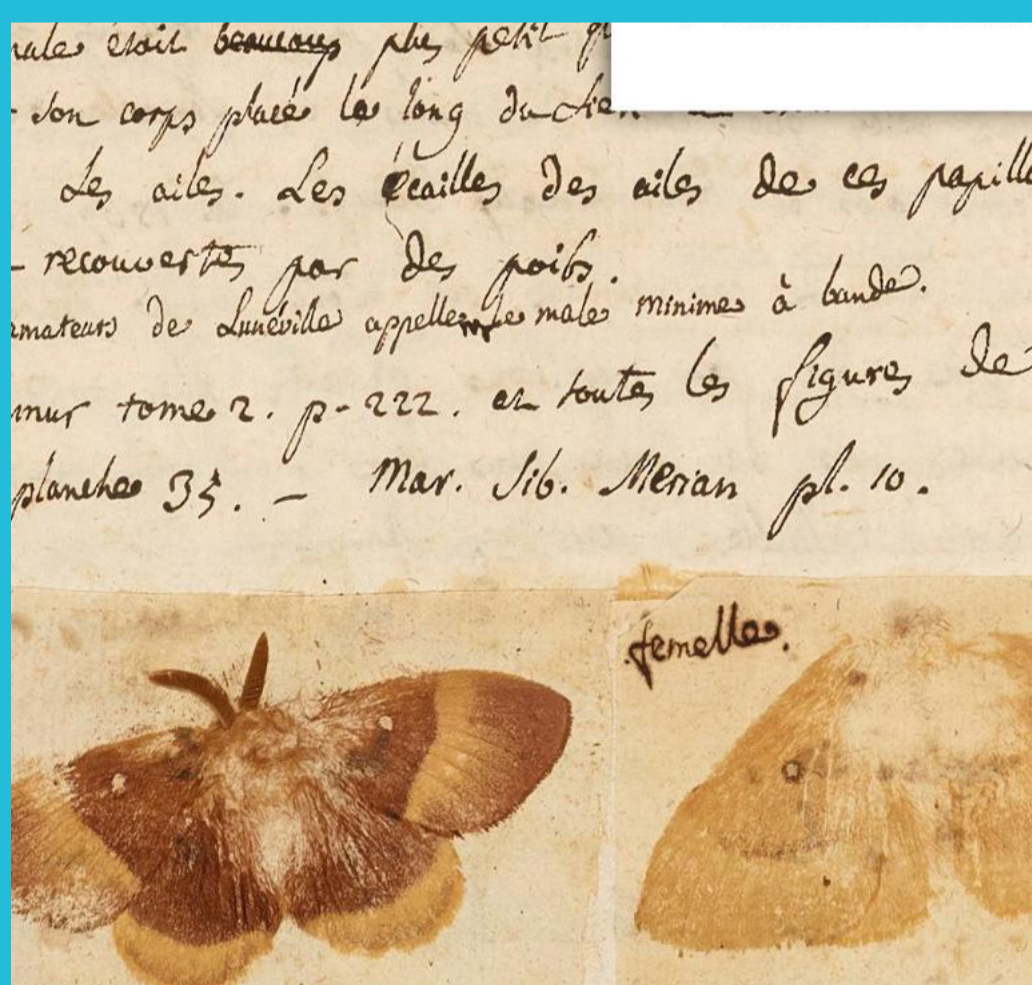 male étoit beaucoup plus petit
son corps placé le long du lien
les ailes. Les écailles des ailes de ces papill
recouvertes par des poils.
amateurs de Lunéville appellent le male minime à bande.
mur tome 2. p. 222. et toutes les figures de
planche 35. — Mar. Sib. Merian pl. 10.
femelle.